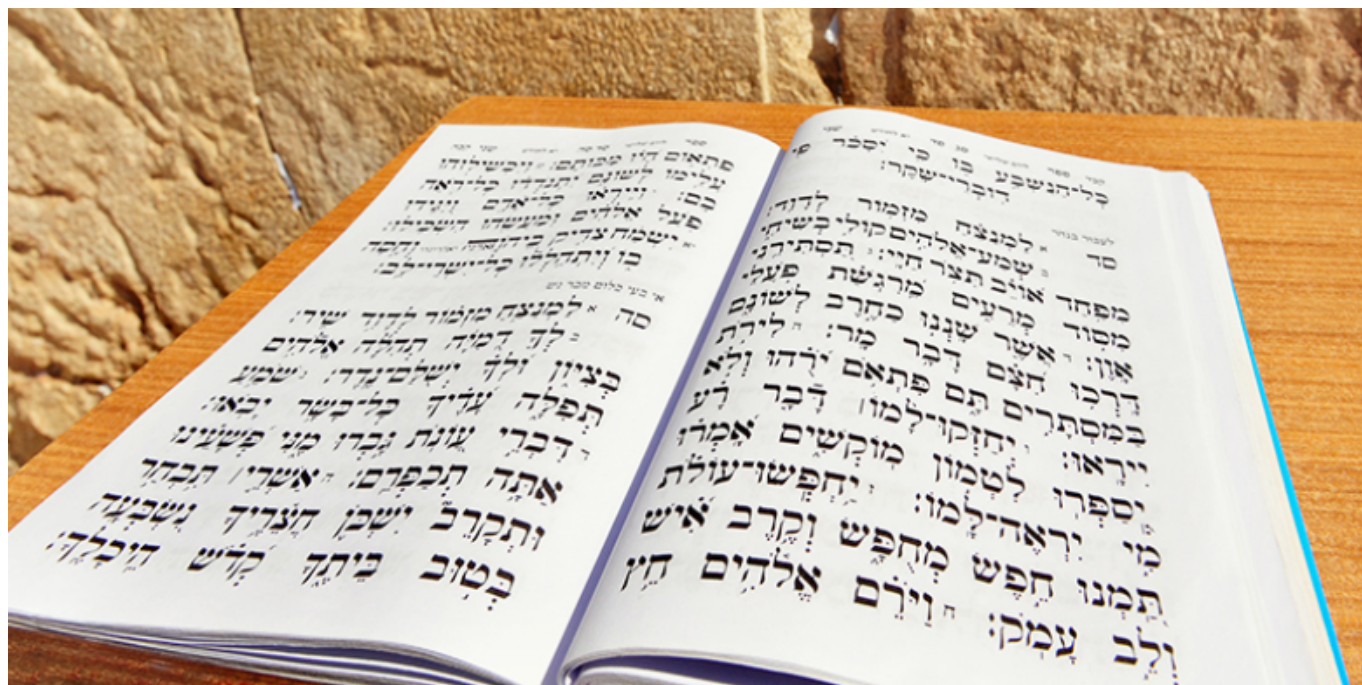 ספר סג סד שני
כָּל־הַנִּשְׁבָּע בּוֹ כִּי יִסָּכֵר פִּי
דוֹבְרֵי־שָׁקֶר:
לעבור בנהר
סד א לַמְנַצֵּחַ מִזְמוֹר לְדָוִד:
ב שְׁמַע־אֱלֹהִים קוֹלִי בְשִׂיחִי
מִפַּחַד אוֹיֵב תִּצֹּר חַיָּי: ג תַּסְתִּירֵנִי
מִסּוֹד מְרֵעִים מֵרִגְשַׁת פֹּעֲלֵי
אָוֶן: ד אֲשֶׁר שָׁנְנוּ כַחֶרֶב לְשׁוֹנָם
דָּרְכוּ חִצָּם דָּבָר מָר: ה לִירֹת
בַּמִּסְתָּרִים תָּם פִּתְאֹם יֹרֻהוּ וְלֹא
יִירָאוּ: ו יְחַזְּקוּ־לָמוֹ | דָּבָר רָע
יְסַפְּרוּ לִטְמוֹן מוֹקְשִׁים אָמְרוּ
מִי יִרְאֶה־לָּמוֹ: ז יַחְפְּשׂוּ־עוֹלֹת
תַּמְנוּ חֵפֶשׂ מְחֻפָּשׂ וְקֶרֶב אִישׁ
וְלֵב עָמֹק: ח וַיֹּרֵם אֱלֹהִים חֵץ
ספר שני
פִּתְאוֹם הָיוּ מַכּוֹתָם: ט וַיַּכְשִׁילוּהוּ
עָלֵימוֹ לְשׁוֹנָם יִתְנֹדֲדוּ כָּל־רֹאֵה
בָם: י וַיִּירְאוּ כָּל־אָדָם וַיַּגִּידוּ
פֹּעַל אֱלֹהִים וּמַעֲשֵׂהוּ הִשְׂכִּילוּ:
יא יִשְׂמַח צַדִּיק בַּיהוָה וְחָסָה
בוֹ וְיִתְהַלְלוּ כָּל־יִשְׁרֵי־לֵב:
אי בעי כלום מבר נש
סה א לַמְנַצֵּחַ מִזְמוֹר לְדָוִד שִׁיר:
ב לְךָ דֻמִיָּה תְהִלָּה אֱלֹהִים
בְּצִיּוֹן וּלְךָ יְשֻׁלַּם־נֶדֶר: ג שֹׁמֵעַ
תְּפִלָּה עָדֶיךָ כָּל־בָּשָׂר יָבֹאוּ:
ד דִּבְרֵי עֲוֺנֹת גָּבְרוּ מֶנִּי פְּשָׁעֵינוּ
אַתָּה תְכַפְּרֵם: ה אַשְׁרֵי | תִּבְחַר
וּתְקָרֵב יִשְׁכֹּן חֲצֵרֶיךָ נִשְׂבְּעָה
בְּטוּב בֵּיתֶךָ קְדֹשׁ הֵיכָלֶךָ: